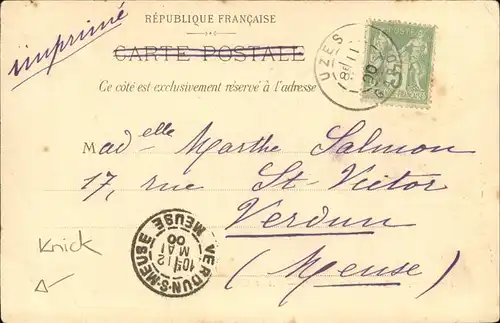 RÉPUBLIQUE FRANÇAISE
imprimé
CARTE POSTALE
Ce côté est exclusivement réservé à l'adresse
UZÈS
GARD
Madelle Marthe Salmon
17, rue St-Victor
Verdun
(Meuse)
VERDUN-S-MEUSE
MEUSE
12
MAI
00
Knick